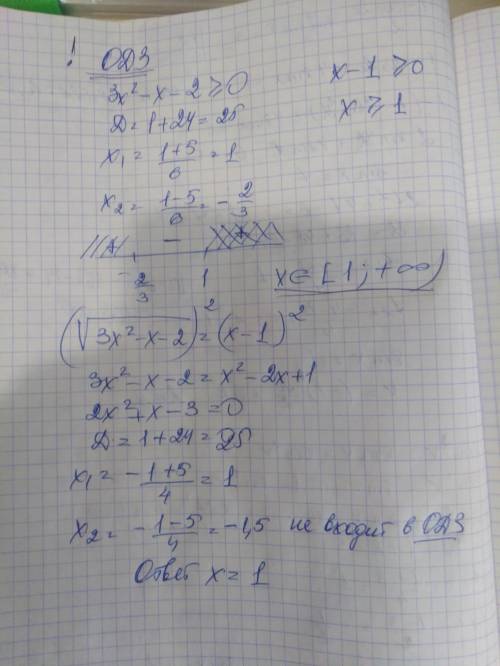 ! ОДЗ
3x² - x - 2 ≥ 0
x - 1 ≥ 0
Д = 1 + 24 = 25
x ≥ 1
x₁ = (1+5)/6 = 1
x₂ = (1-5)/6 = -2/3
+ - +
-2/3 1
x ∈ [1; +∞)
(√(3x² - x - 2))² = (x - 1)²
3x² - x - 2 = x² - 2x + 1
2x² + x - 3 = 0
Д = 1 + 24 = 25
x₁ = (-1+5)/4 = 1
x₂ = (-1-5)/4 = -1,5 не входит в ОДЗ
Ответ x = 1